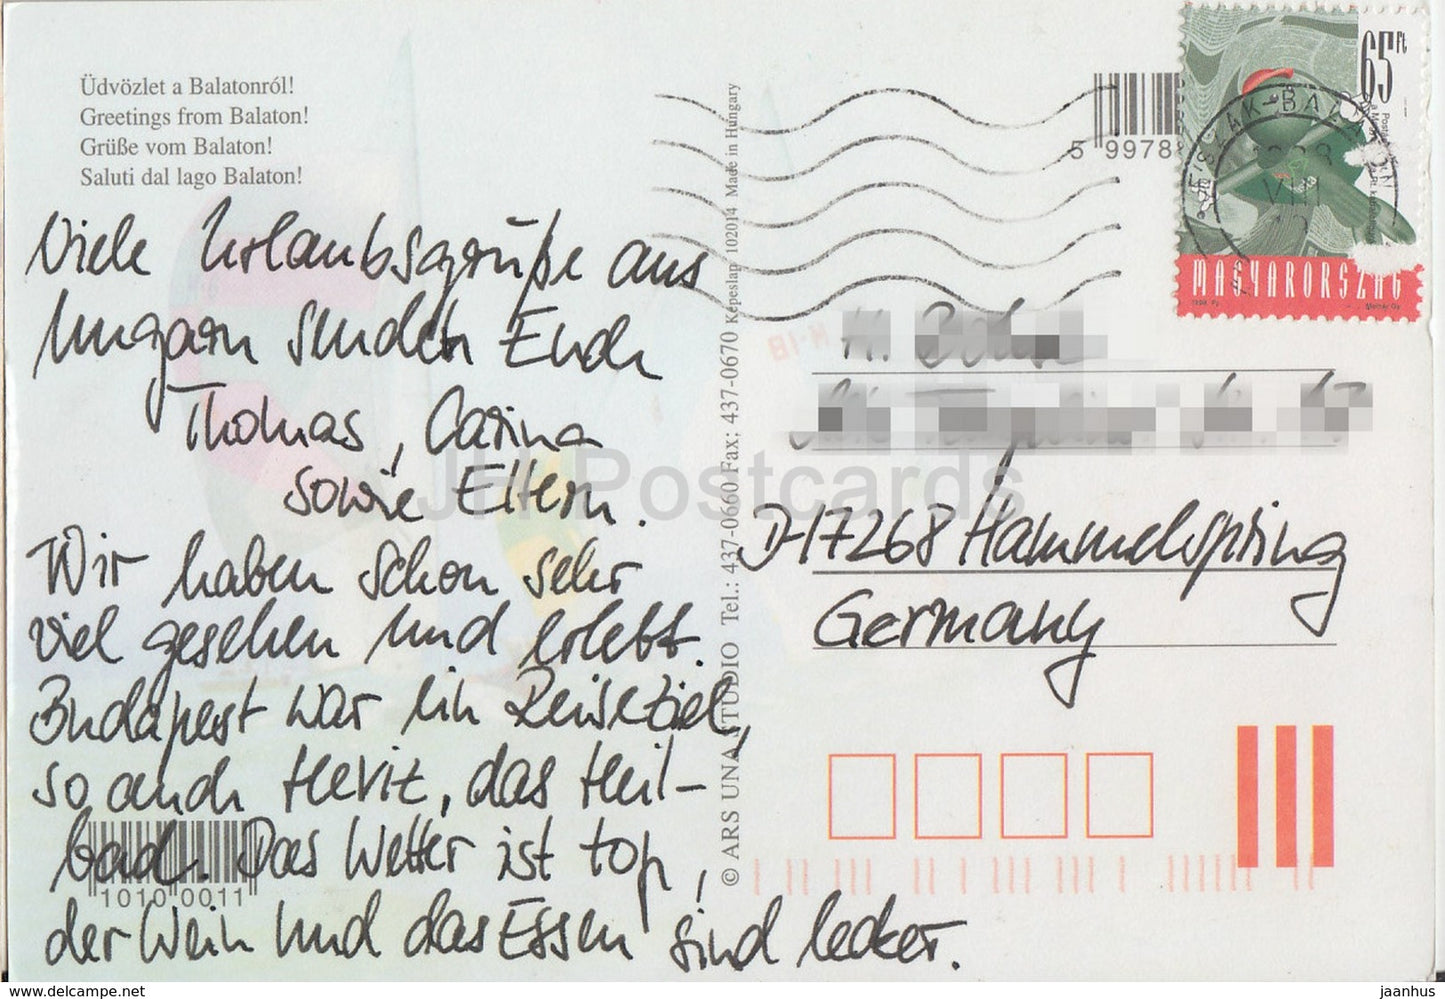 Üdvözlet a Balatonról!
Greetings from Balaton!
Grüße vom Balaton!
Saluti dal lago Balaton!
Viele Urlaubsgrüße aus
Ungarn senden Euch
Thomas, Carina
sowie Eltern.
Wir haben schon sehr
viel gesehen und erlebt.
Budapest war ein Reiseziel,
so auch Heviz, das Heil-
bad. Das Wetter ist top,
der Wein und das Essen sind lecker.
1010 0011
© ARS UNA STUDIO Tel.: 437-0660 Fax: 437-0670 Képeslap 102014 Made in Hungary
5 9978
65 ft
MAGYARORSZÁG
VIII
D-17268 Hammelspring
Germany
JH Postcards
www.delcampe.net
jaanhus